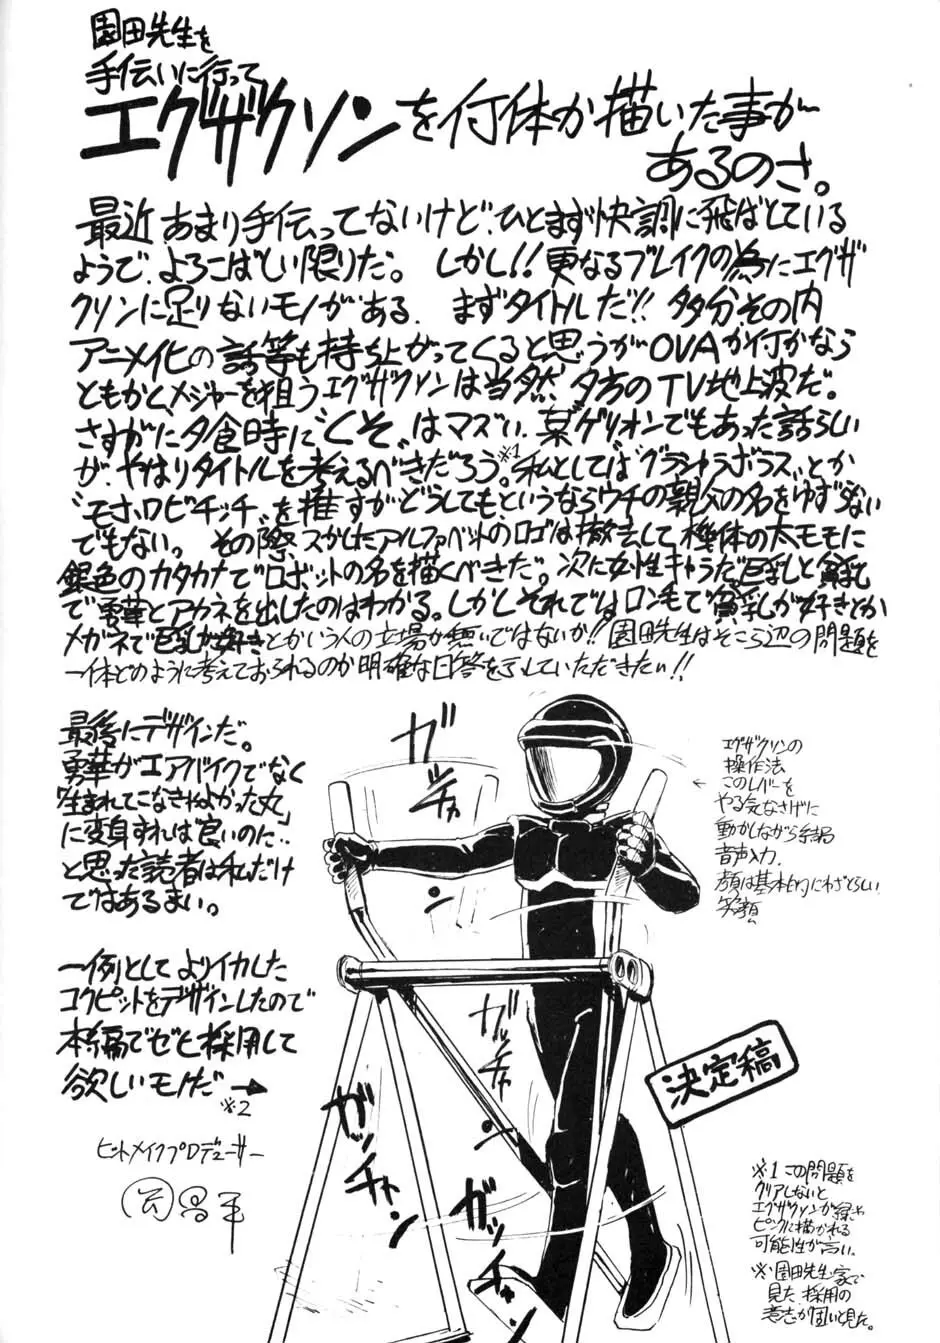 園田先生を
手伝いに行って
エグザクソンを何体か描いた事が
あるのさ。
最近あまり手伝ってないけど、ひとまず快調に飛ばしている
ようで、よろこばしい限りだ。しかし!!更なるブレイクの為にエグザ
クソンに足りないモノがある。まずタイトルだ!!多分その内
アニメイヒの話等も持ち上がってくると思うがOVAか何かなら
ともかく、メジャーを狙うエグザクソンは当然、夕方のTV地上波だ。
さすがに夕食時に〝くそ〟はマズい。某ゲリオンでもあった話らしい
が、やはりタイトルを考えるべきだろう。※1私としては〝グランゥラボラス〟とか
〝モホロビチッチ〟を推すがどうしてもというならウチの親父の名をゆずらない
でもない。その際スかしたアルファベットのロゴは撤去して機体の太モモに
銀色のカタカナでロボットの名を描くべきだ。次に女性キャラだ。巨乳と貧乳
で勇華とアカネを出したのはわかる。しかしそれではロン毛で貧乳が好きとか
メガネで巨乳が好きとかいう人の立場が無いではないか!!園田先生はそこら辺の問題を
一体どのように考えておられるのか明確な回答を示していただきたい!!
最後にデザインだ。
勇華がエアバイクでなく
「生まれてこなきゃよかった丸」
に変身すれば良いのに…
と思った読者は私だけ
ではあるまい。
一例としてよりイカした
コクピットをデザインしたので
本編でゼヒ採用して
欲しいモノだ→
※2
ヒットメイクプロデューサー
ガ
チャ
ン
ガッ
チャ
ン
ガッ
チャン
ガッ
チャン
エグザクソンの
操作法
このレバーを
やる気なさげに
動かしながら
音声入力、
顔は基本的にわざとらしい
笑顔
決定稿
※1 この問題を
クリアしないと
エグザクソンが緑や
ピンクに描かれる
可能性が高い。
※園田先生家で
見た、採用の
意志が固いと見た。